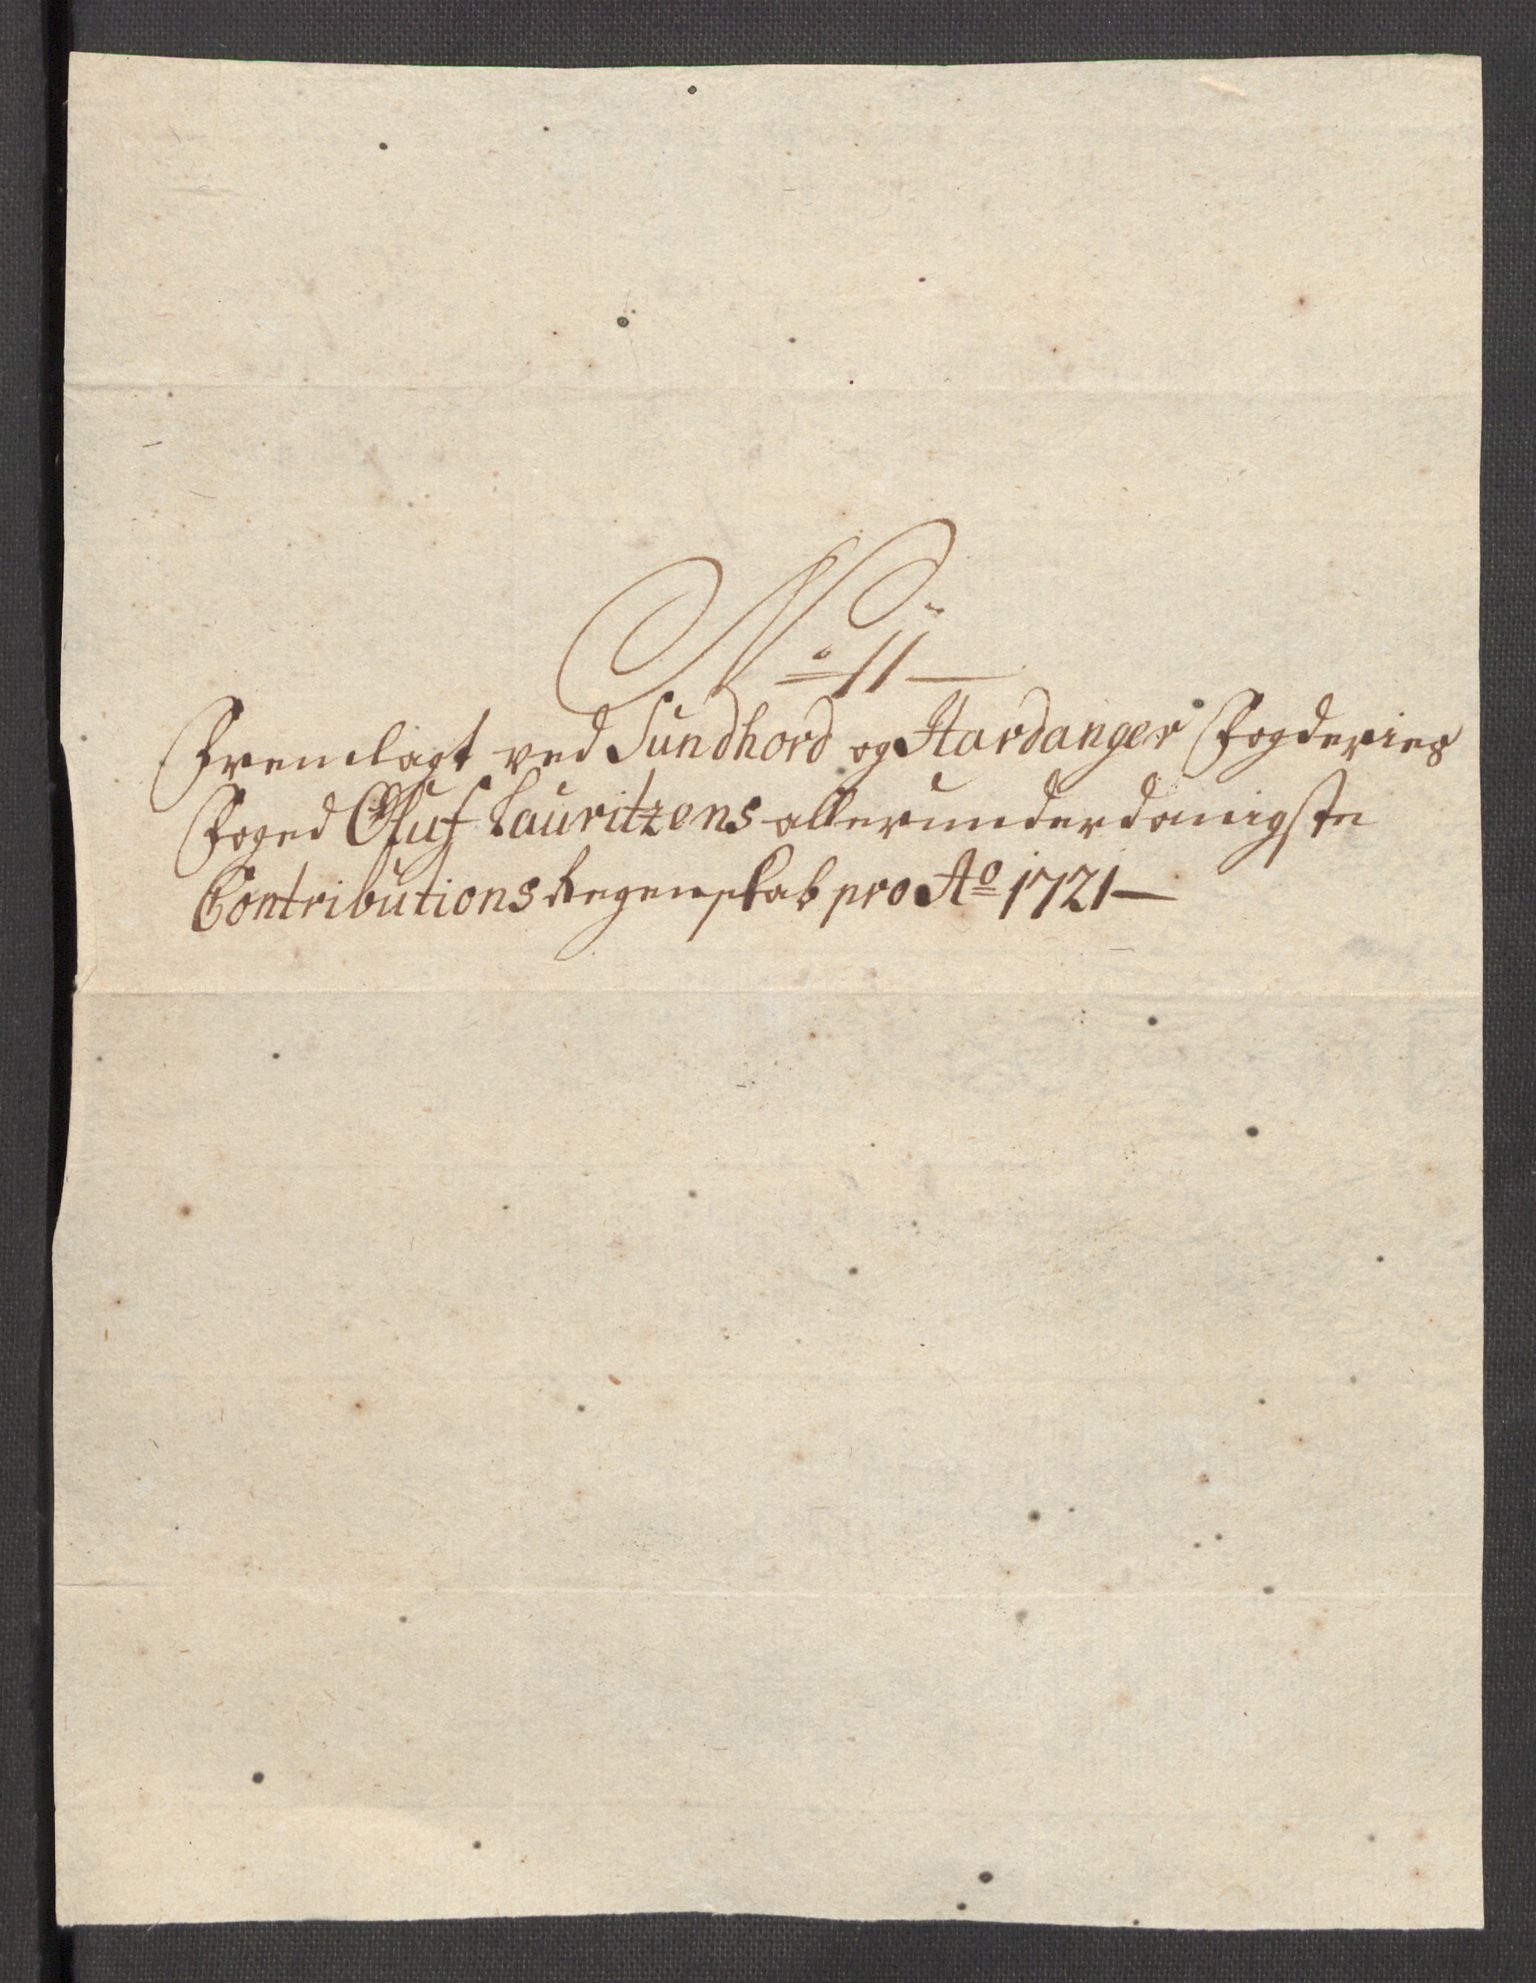 No 11 —
Fremlagt ved Sundhord og Hardanger Fogderies
Foged Oluf Lauritzens allerunderdanigste
Contributions Regenskab pro Ao 1721 —